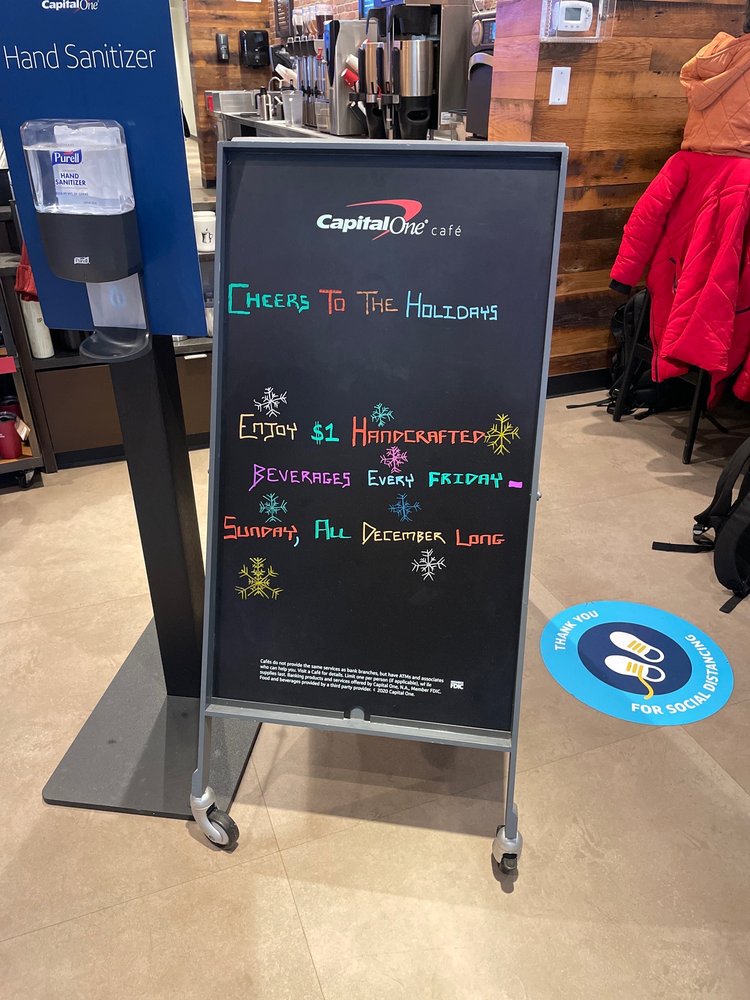 Capital One
Hand Sanitizer
Purell
HAND
SANITIZER
Capital One café
CHEERS TO THE HOLIDAYS
ENJOY $1 HANDCRAFTED
BEVERAGES EVERY FRIDAY -
SUNDAY, ALL DECEMBER LONG
Cafés do not provide the same services as bank branches, but have ATMs and associates
who can help you. Visit a Café for details. Limit one per person (if applicable), while
supplies last. Banking products and services offered by Capital One, N.A., Member FDIC.
Food and beverages provided by a third party provider. © 2020 Capital One.
FDIC
THANK YOU
FOR SOCIAL DISTANCING